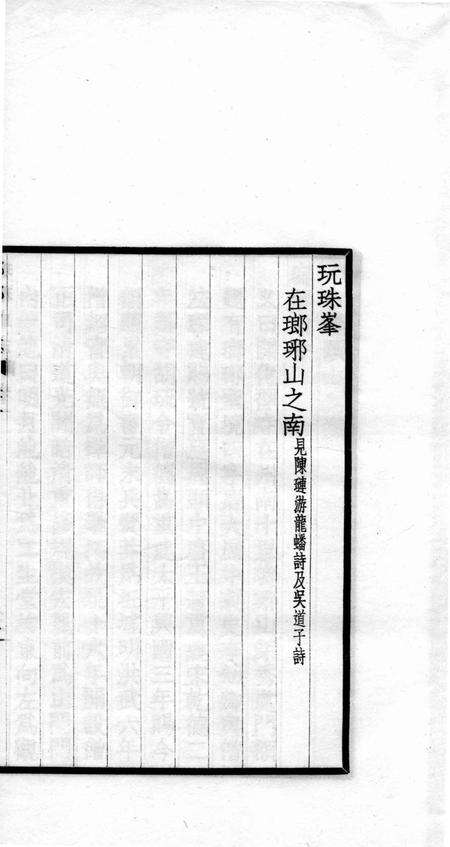 玩珠峯
在瑯琊山之南見陳璉游龍蟠詩及吳道子詩